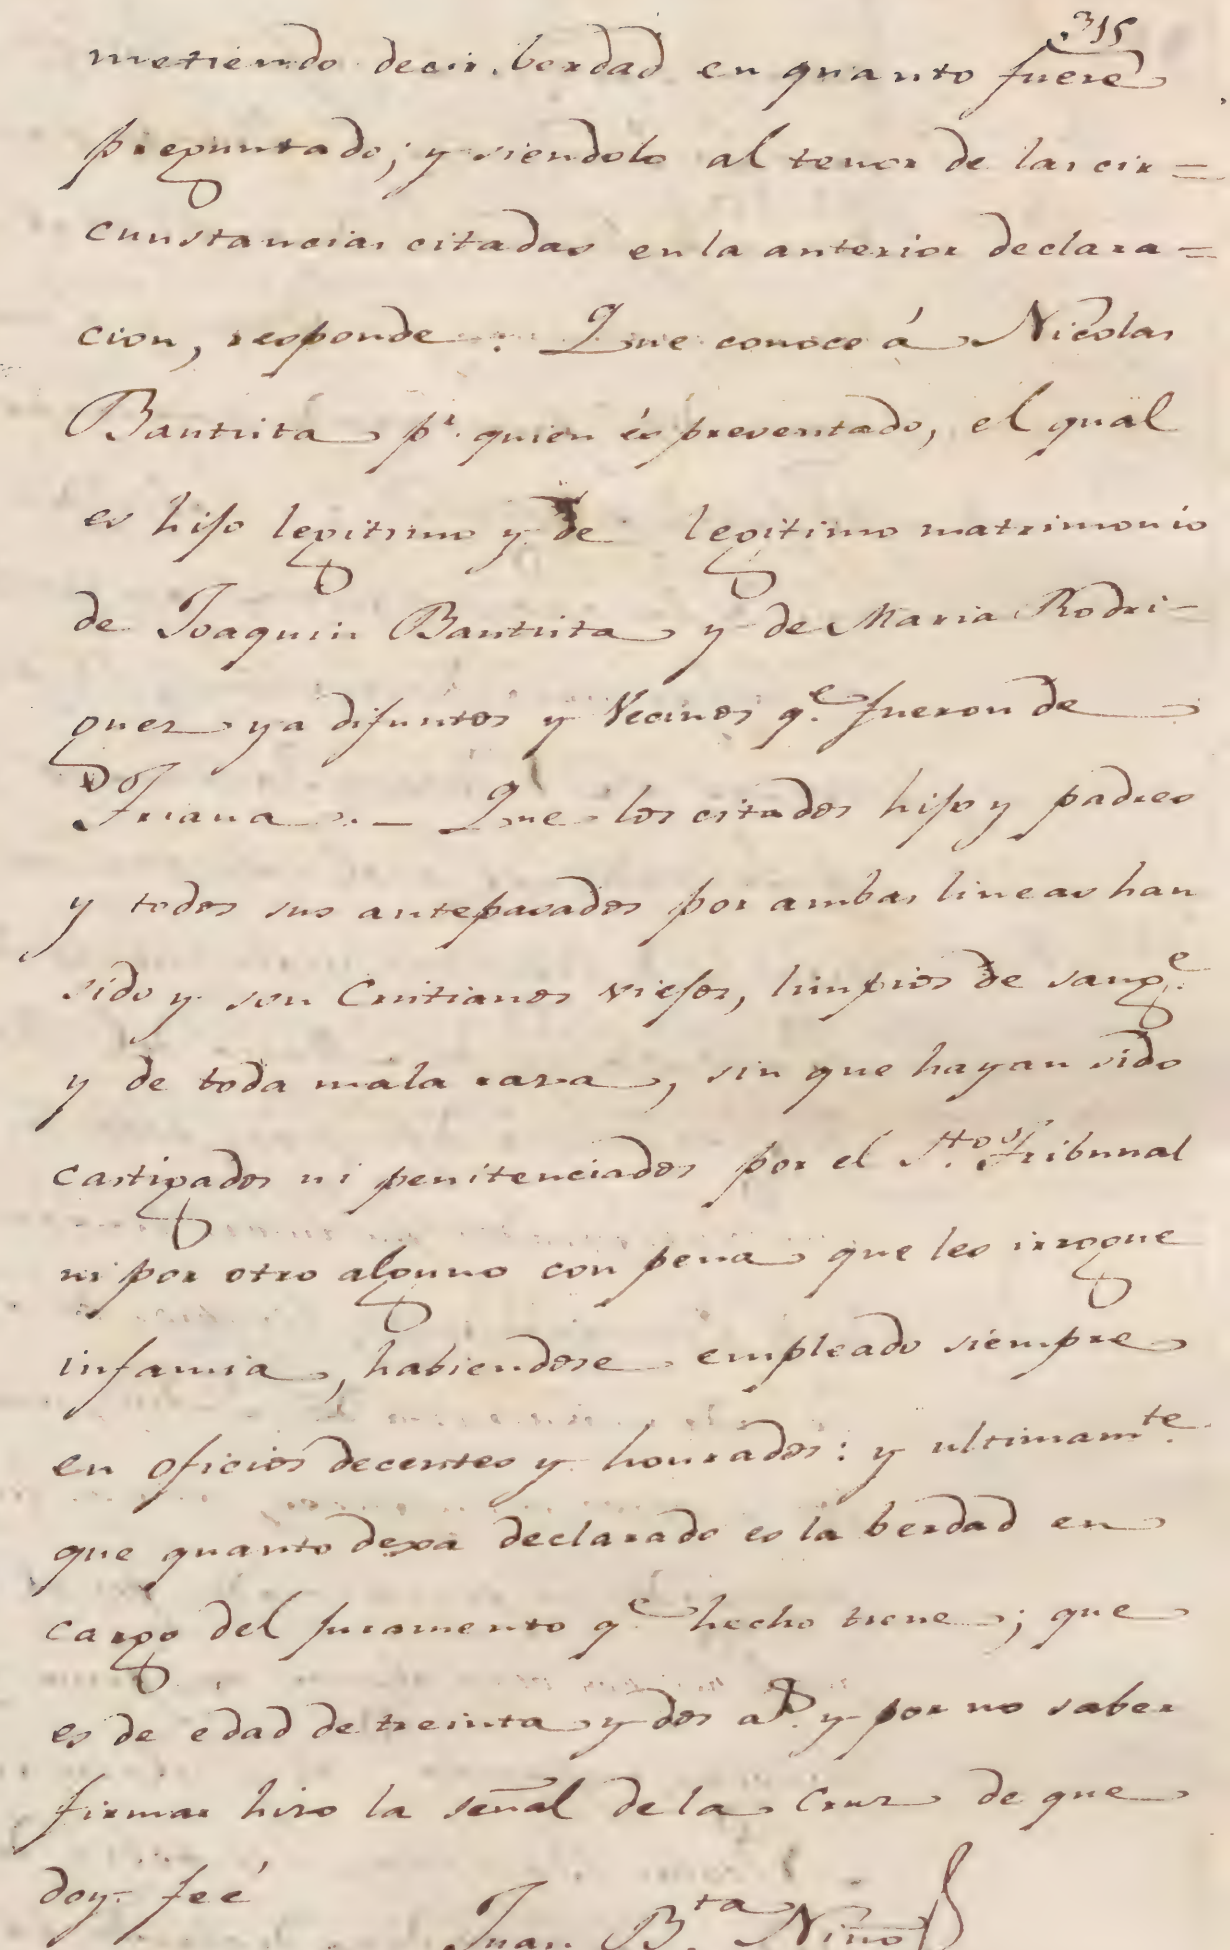 315
metiendo decir berdad en quanto fuere
preguntado; y siendolo al tenor de las cir=
cunstancias citadas en la anterior declara=
cion, responde: Que conoce á Nicolas
Bautista pr. quien és presentado, el qual
es hijo legitimo y de legitimo matrimonio
de Joaquin Bautista y de Maria Rodri-
guez ya difuntos y Vecinos qe. fueron de
Triana.- Que los citados hijo y padres
y todos sus antepasados por ambas lineas han
sido y son Cristianos viejos, limpios de sange.
y de toda mala raza, sin que hayan sido
castigados ni penitenciados por el Sto. Tribunal
ni por otro alguno con pena que les irrogue
infamia, habiendose empleado siempre
en oficios decentes y honrados: y ultimamte.
que quanto dexa declarado es la berdad en
cargo del juramento qe hecho tiene; que
es de edad de treinta y dos as. y por no saber
firmar hizo la señal de la Cruz de que
doy feé
Juan Bta. Niño